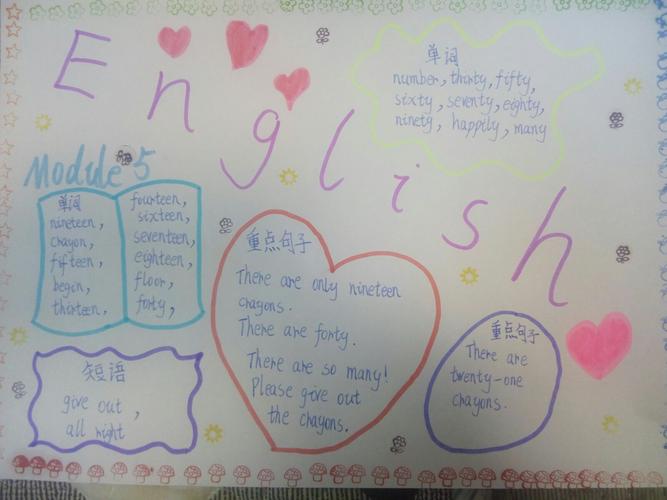 English
单词
number, thirty, fifty,
sixty, seventy, eighty,
ninety, happily, many
Module 5
单词
nineteen,
crayon,
fifteen,
begin,
thirteen,
fourteen,
sixteen,
seventeen,
eighteen,
floor,
forty,
重点句子
There are only nineteen
crayons.
There are forty.
There are so many!
Please give out
the crayons.
重点句子
There are
twenty-one
crayons.
短语
give out,
all right